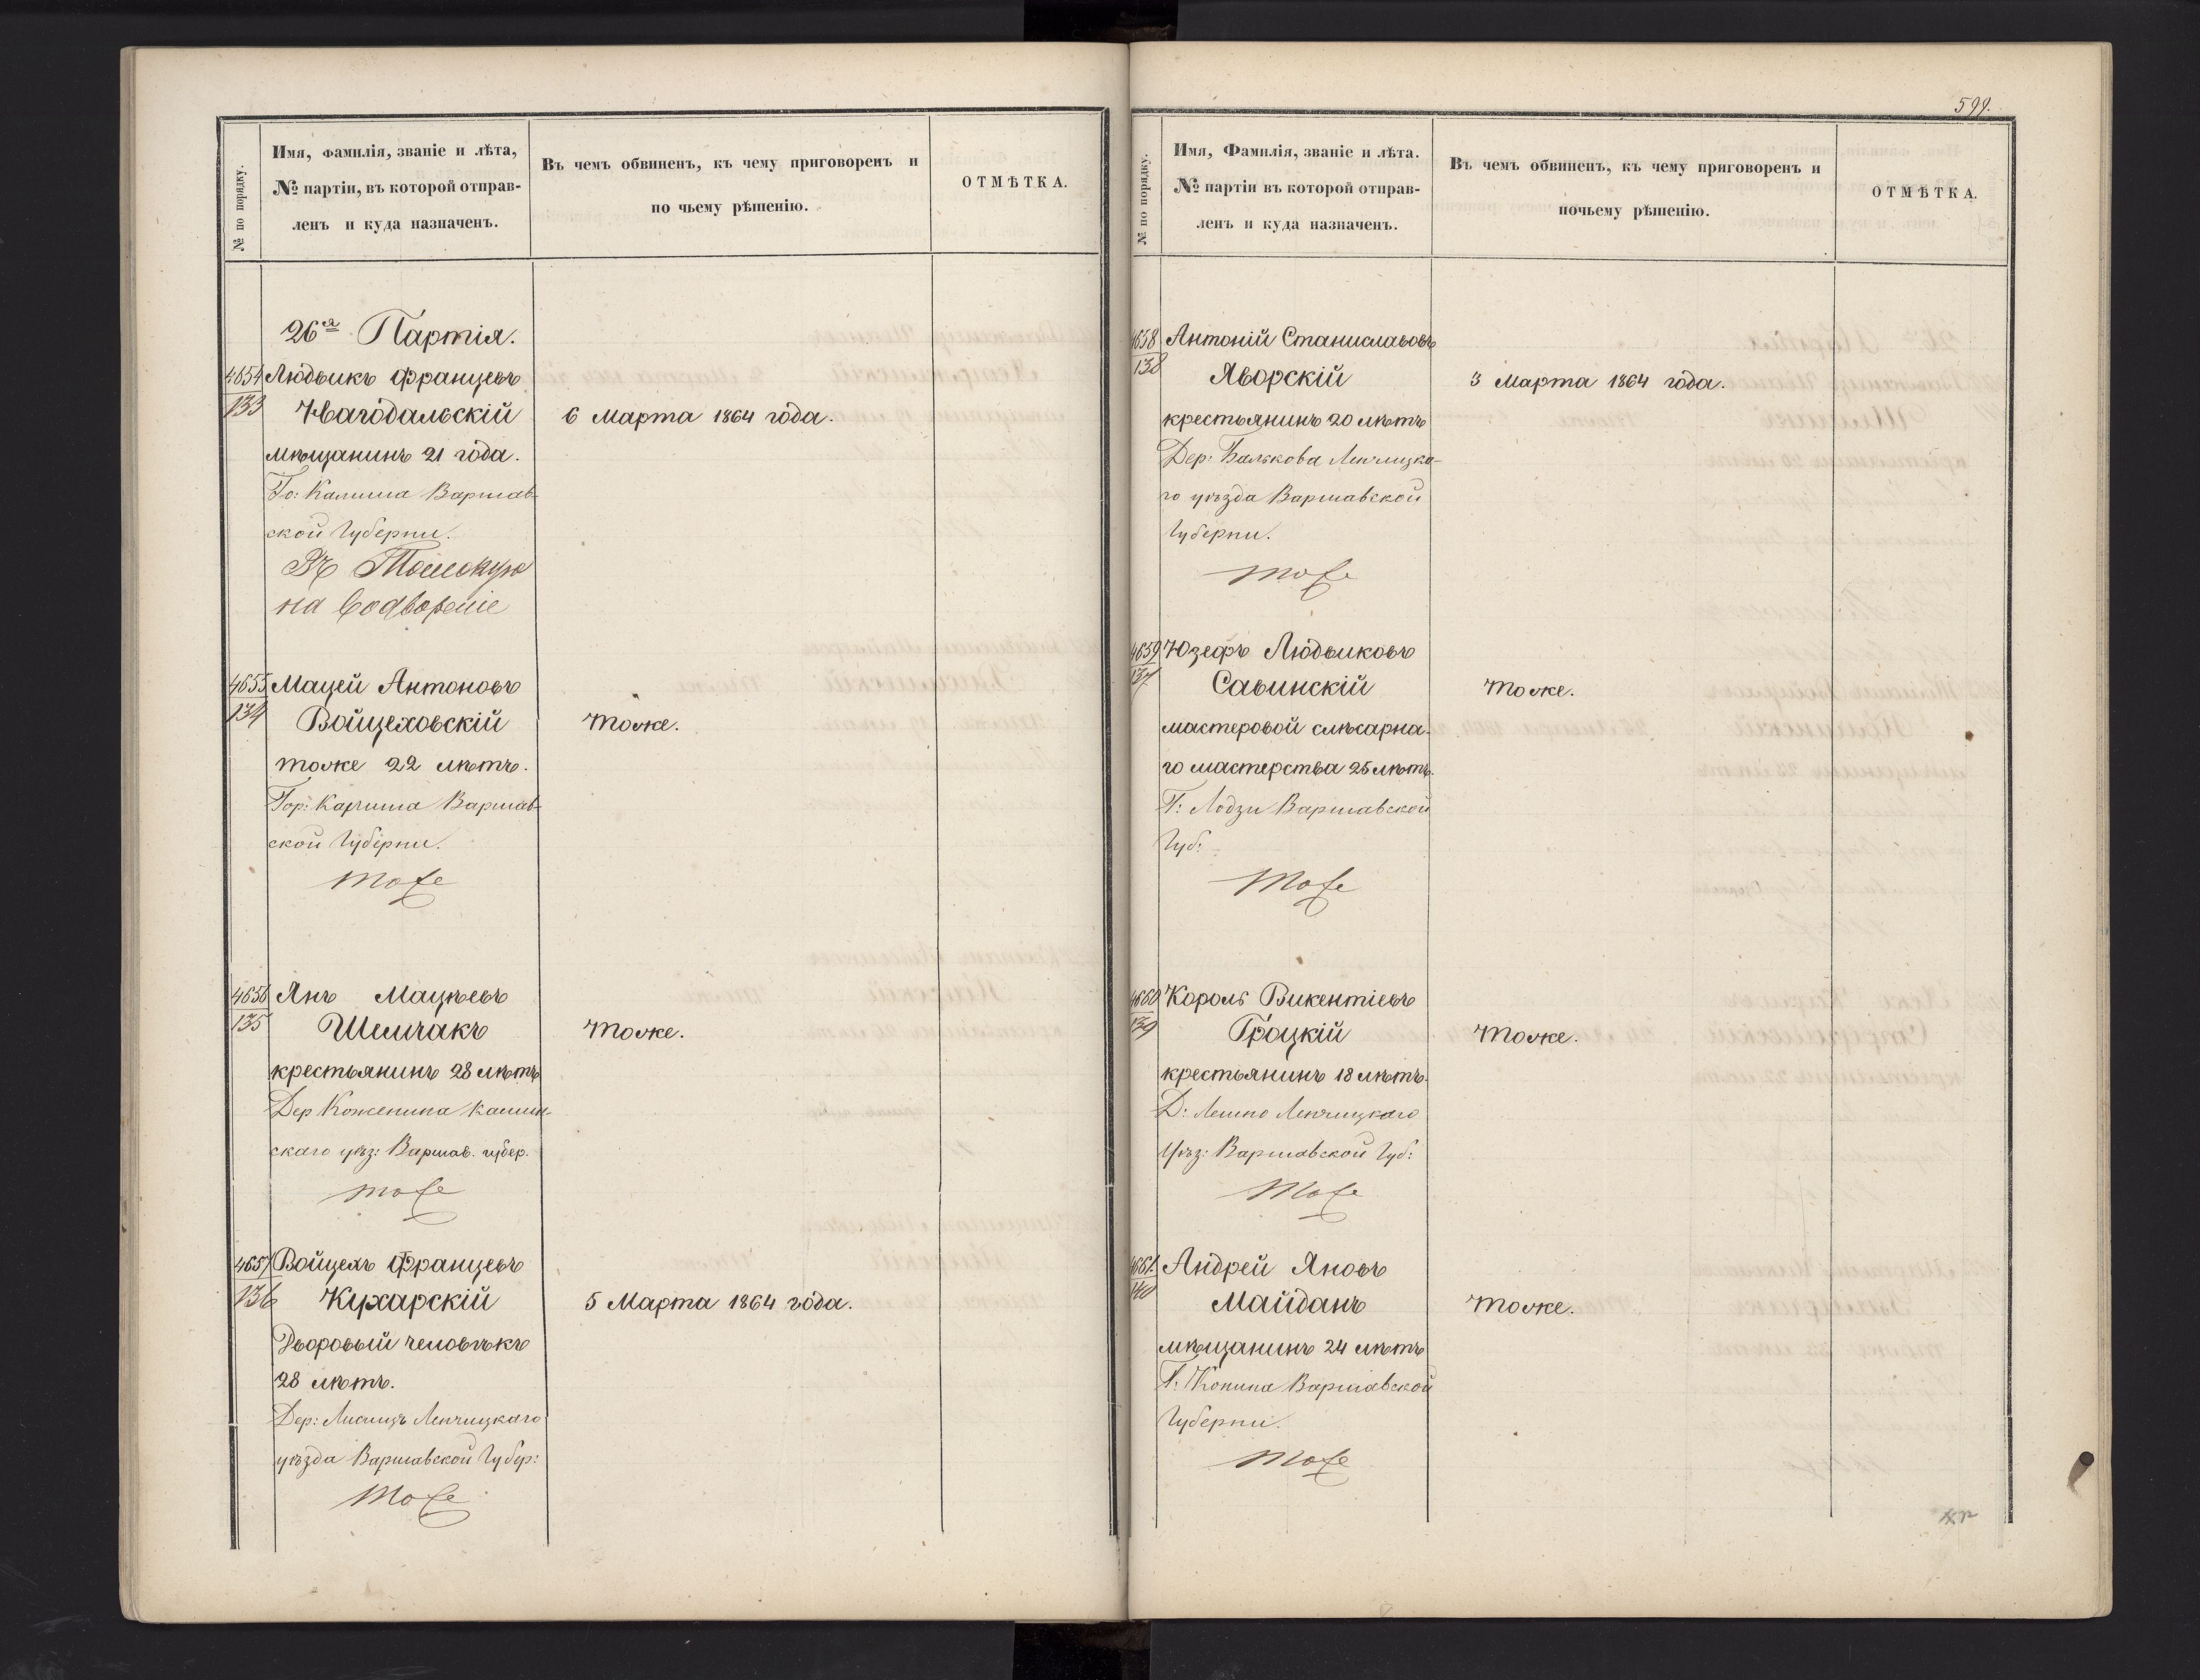 № по порядку.
Имя, фамилія, званіе и лѣта,
№ партіи, въ которой отправ-
ленъ и куда назначенъ.
Въ чемъ обвиненъ, къ чему приговоренъ и
по чьему рѣшенію.
ОТМѢТКА.
26я Партія.
4654
133
Людвикъ Францевъ
Нагодальскій
мѣщанинъ 21 года.
Го: Калиша Варшав-
ской Губерни.
Въ Томскую
на водвореніе
6 Марта 1864 года.
4655
134
Мацей Антоновъ
Войцеховскій
тоже 22 лѣтъ.
Гор: Калиша Варшав-
ской Губерни.
тоже
тоже.
4656
135
Янъ Мацѣевъ
Шемчакъ
крестьянинъ 28 лѣтъ
Дер Коженина Калиш-
скаго уѣз: Варшав. губер.
тоже
тоже.
4657
136
Войцехъ Францевъ
Кухарскій
Дворовый человѣкъ
28 лѣтъ.
Дер: Лисицъ Ленчицкаго
уѣзда Варшавской Губер:
тоже
5 Марта 1864 года.
599.
№ по порядку.
Имя, Фамилія, званіе и лѣта.
№ партіи въ которой отправ-
ленъ и куда назначенъ.
Въ чемъ обвиненъ, къ чему приговоренъ и
почьему рѣшенію.
ОТМѢТКА.
4658
138
Антоній Станиславовъ
Яворскій
крестьянинъ 20 лѣтъ
Дер: Балькова Ленчицка-
го уѣзда Варшавской
Губерни.
тоже
3 Марта 1864 года.
4659
137
Юзефъ Людвиковъ
Савинскій
мастеровой слѣсарна-
го мастерства 25 лѣтъ.
Г: Лодзи Варшавской
Губ:
тоже
тоже.
4660
139
Король Викентіевъ
Гроцкій
крестьянинъ 18 лѣтъ.
Д: Лешно Ленчицкаго
Уѣз: Варшавской Губ:
тоже
тоже.
4661.
140
Андрей Яновъ
Майданъ
мѣщанинъ 24 лѣтъ
Г: Конина Варшавской
Губерни.
тоже
тоже.